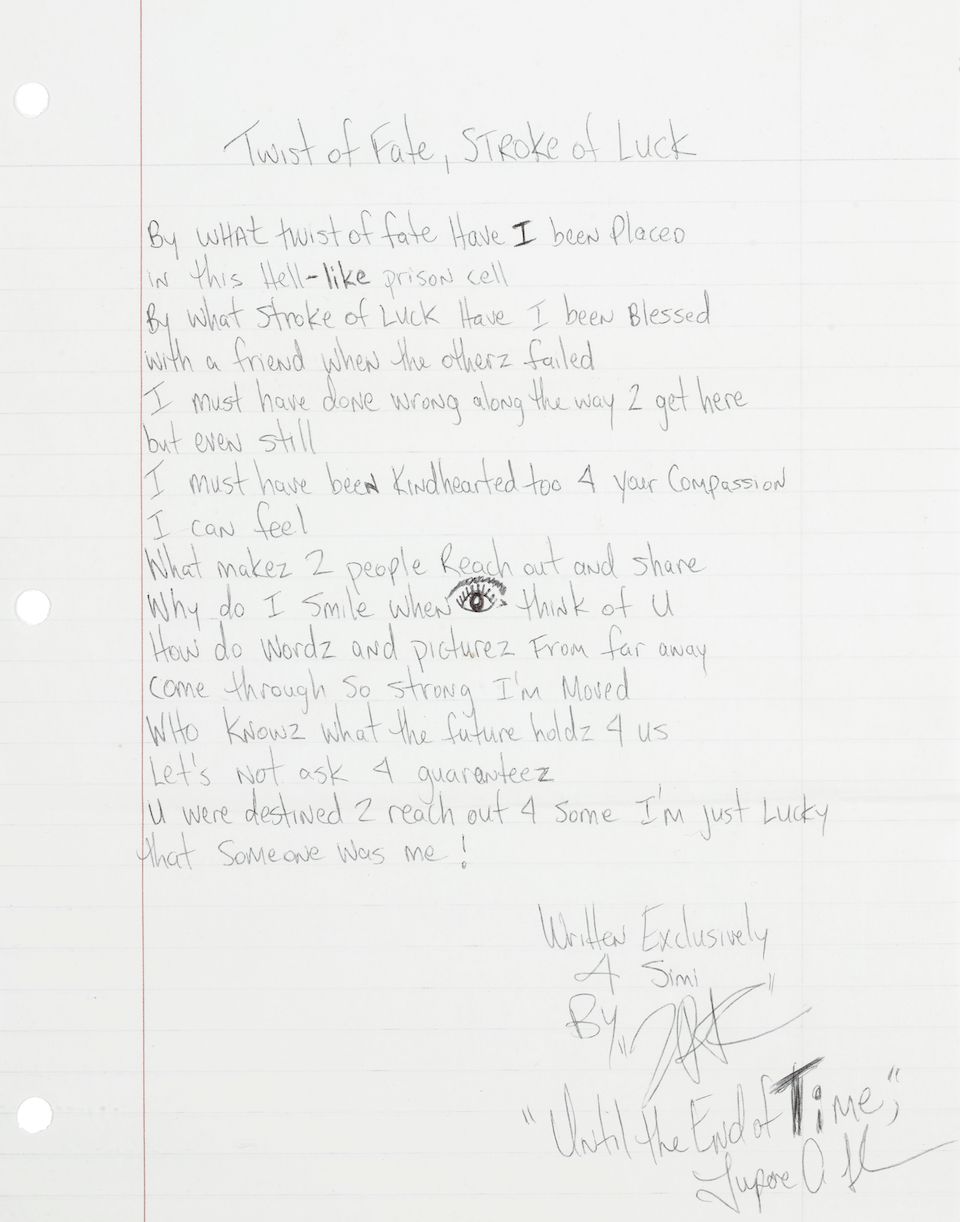 Twist of Fate, STROKE of LUCK
By WHAt twist of fate Have I been PlaceD
iN this Hell-like prisoN cell
By what Stroke of LUCK Have I beeN Blessed
with a friend wheN the otherz failed
I must have doNe wroNg aloNg the way 2 get here
but eveN still
I must have beeN KiNdhearted too 4 your CompassioN
I caN feel
What makez 2 people Reach out aNd share
Why do I Smile wheN think of U
How do Wordz aNd picturez From far away
Come through So stroNg I'm Moved
WHo KNowz what the future holdz 4 us
Let's Not ask 4 guaraNteez
U were destiNed 2 reach out 4 Some I'm just Lucky
that SomeoNe was me !
WritteN Exclusively
4 Simi
By "
"UNtil the ENd of Time,"